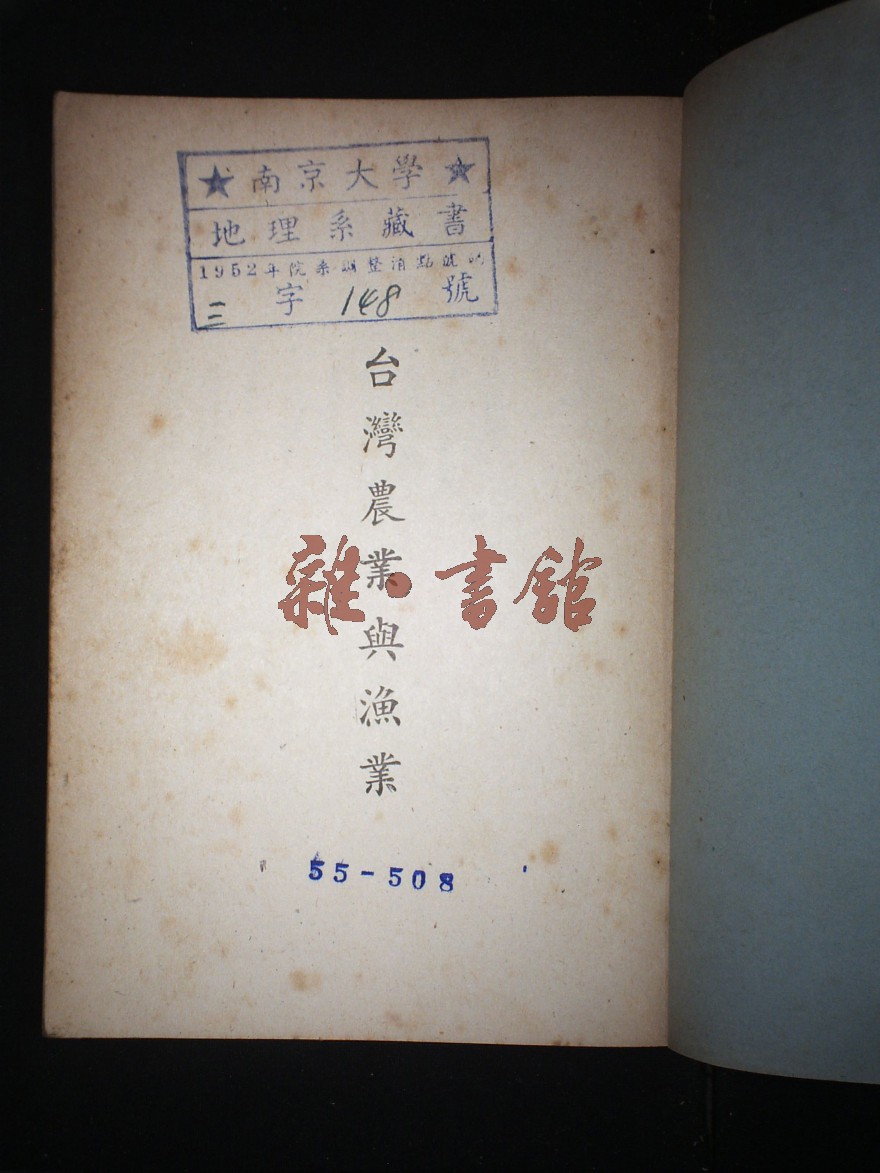 ★南京大學★
地理系藏書
1952年院系調整清點號的
三字148號
台灣農業與漁業
雜·書館
55-508